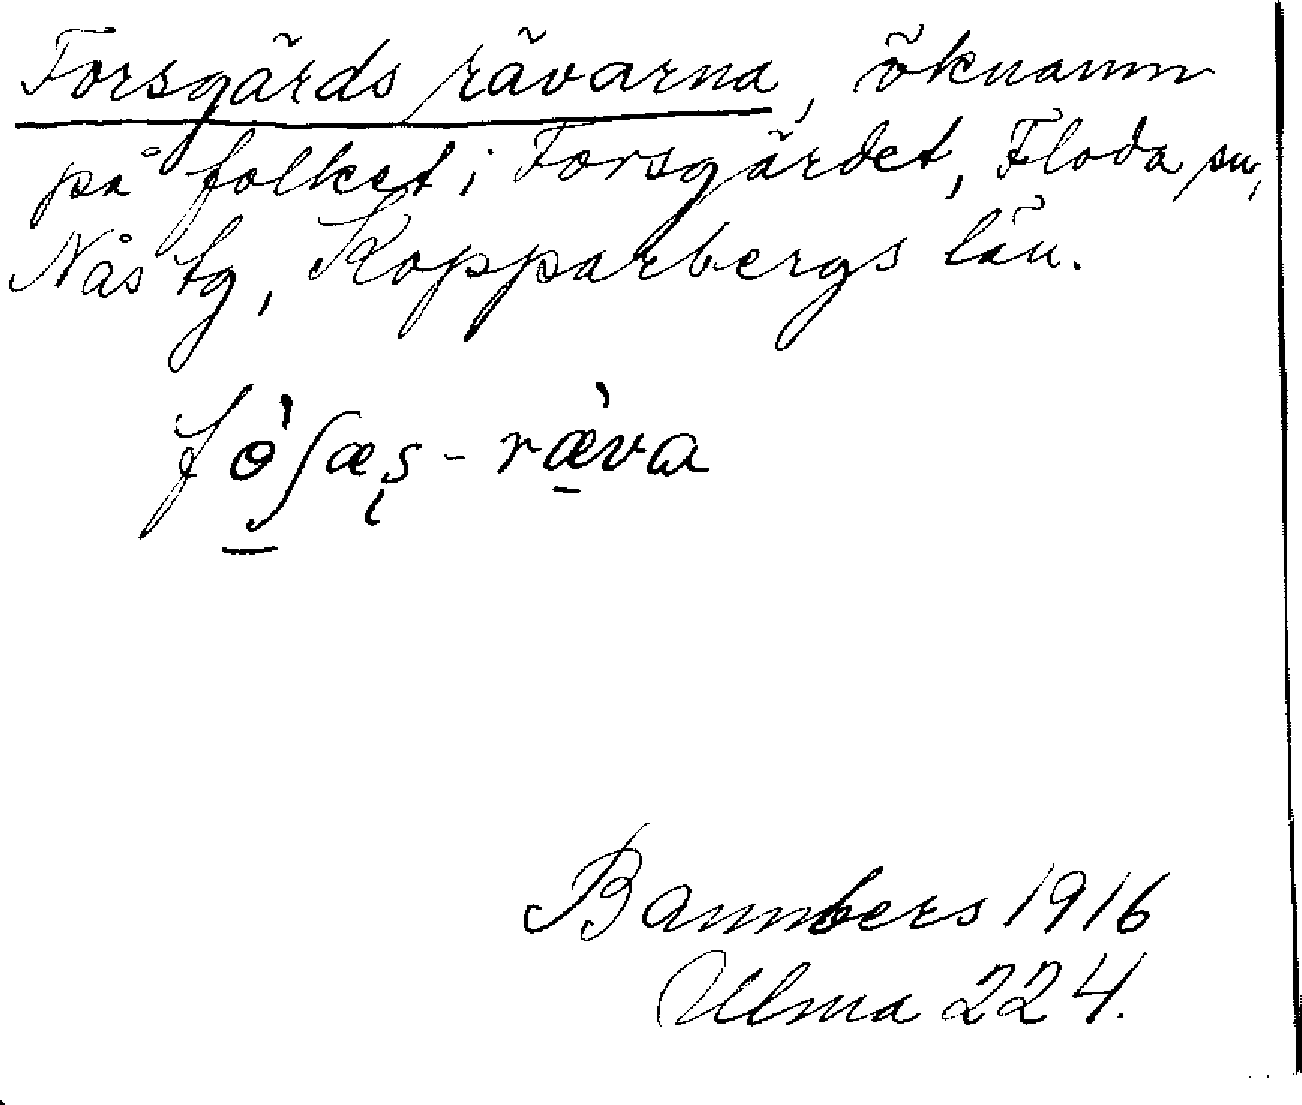 Forsgärds rävarna, öknamn
på folket i Forsgärdet, Floda sn,
Nås tg, Kopparbergs län.
fɵ̀ʃæʂ - ræ̀va
Bannbers 1916
Ulma 224.